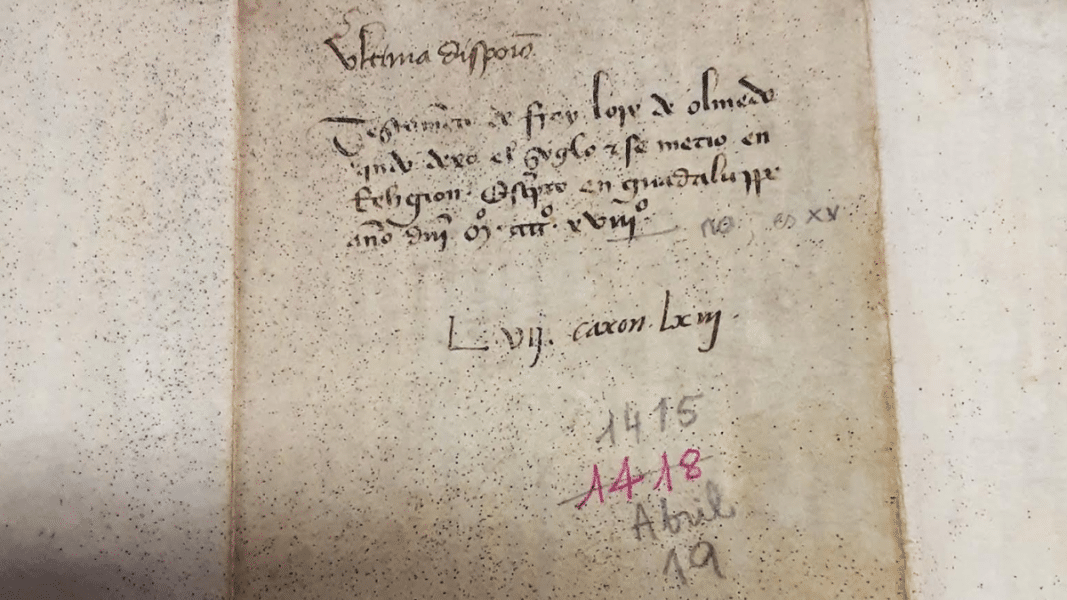 Ultima disposiō
Testamēto de fray lope de olmedo
qndo dexo el syglo & se metio en
Religion. Escripto en guadaluppe
año dm̄ Mº. ccccº. xviiiº no, es XV
L vij. caxon. lxiij.
1415
1418
Abril
19